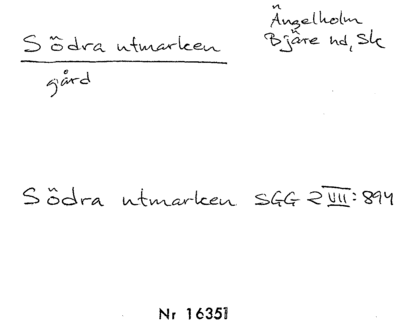 Södra utmarken
Ängelholm
Bjäre hd, Sk
gård
Södra utmarken SGG 2 VII: 894
Nr 16351